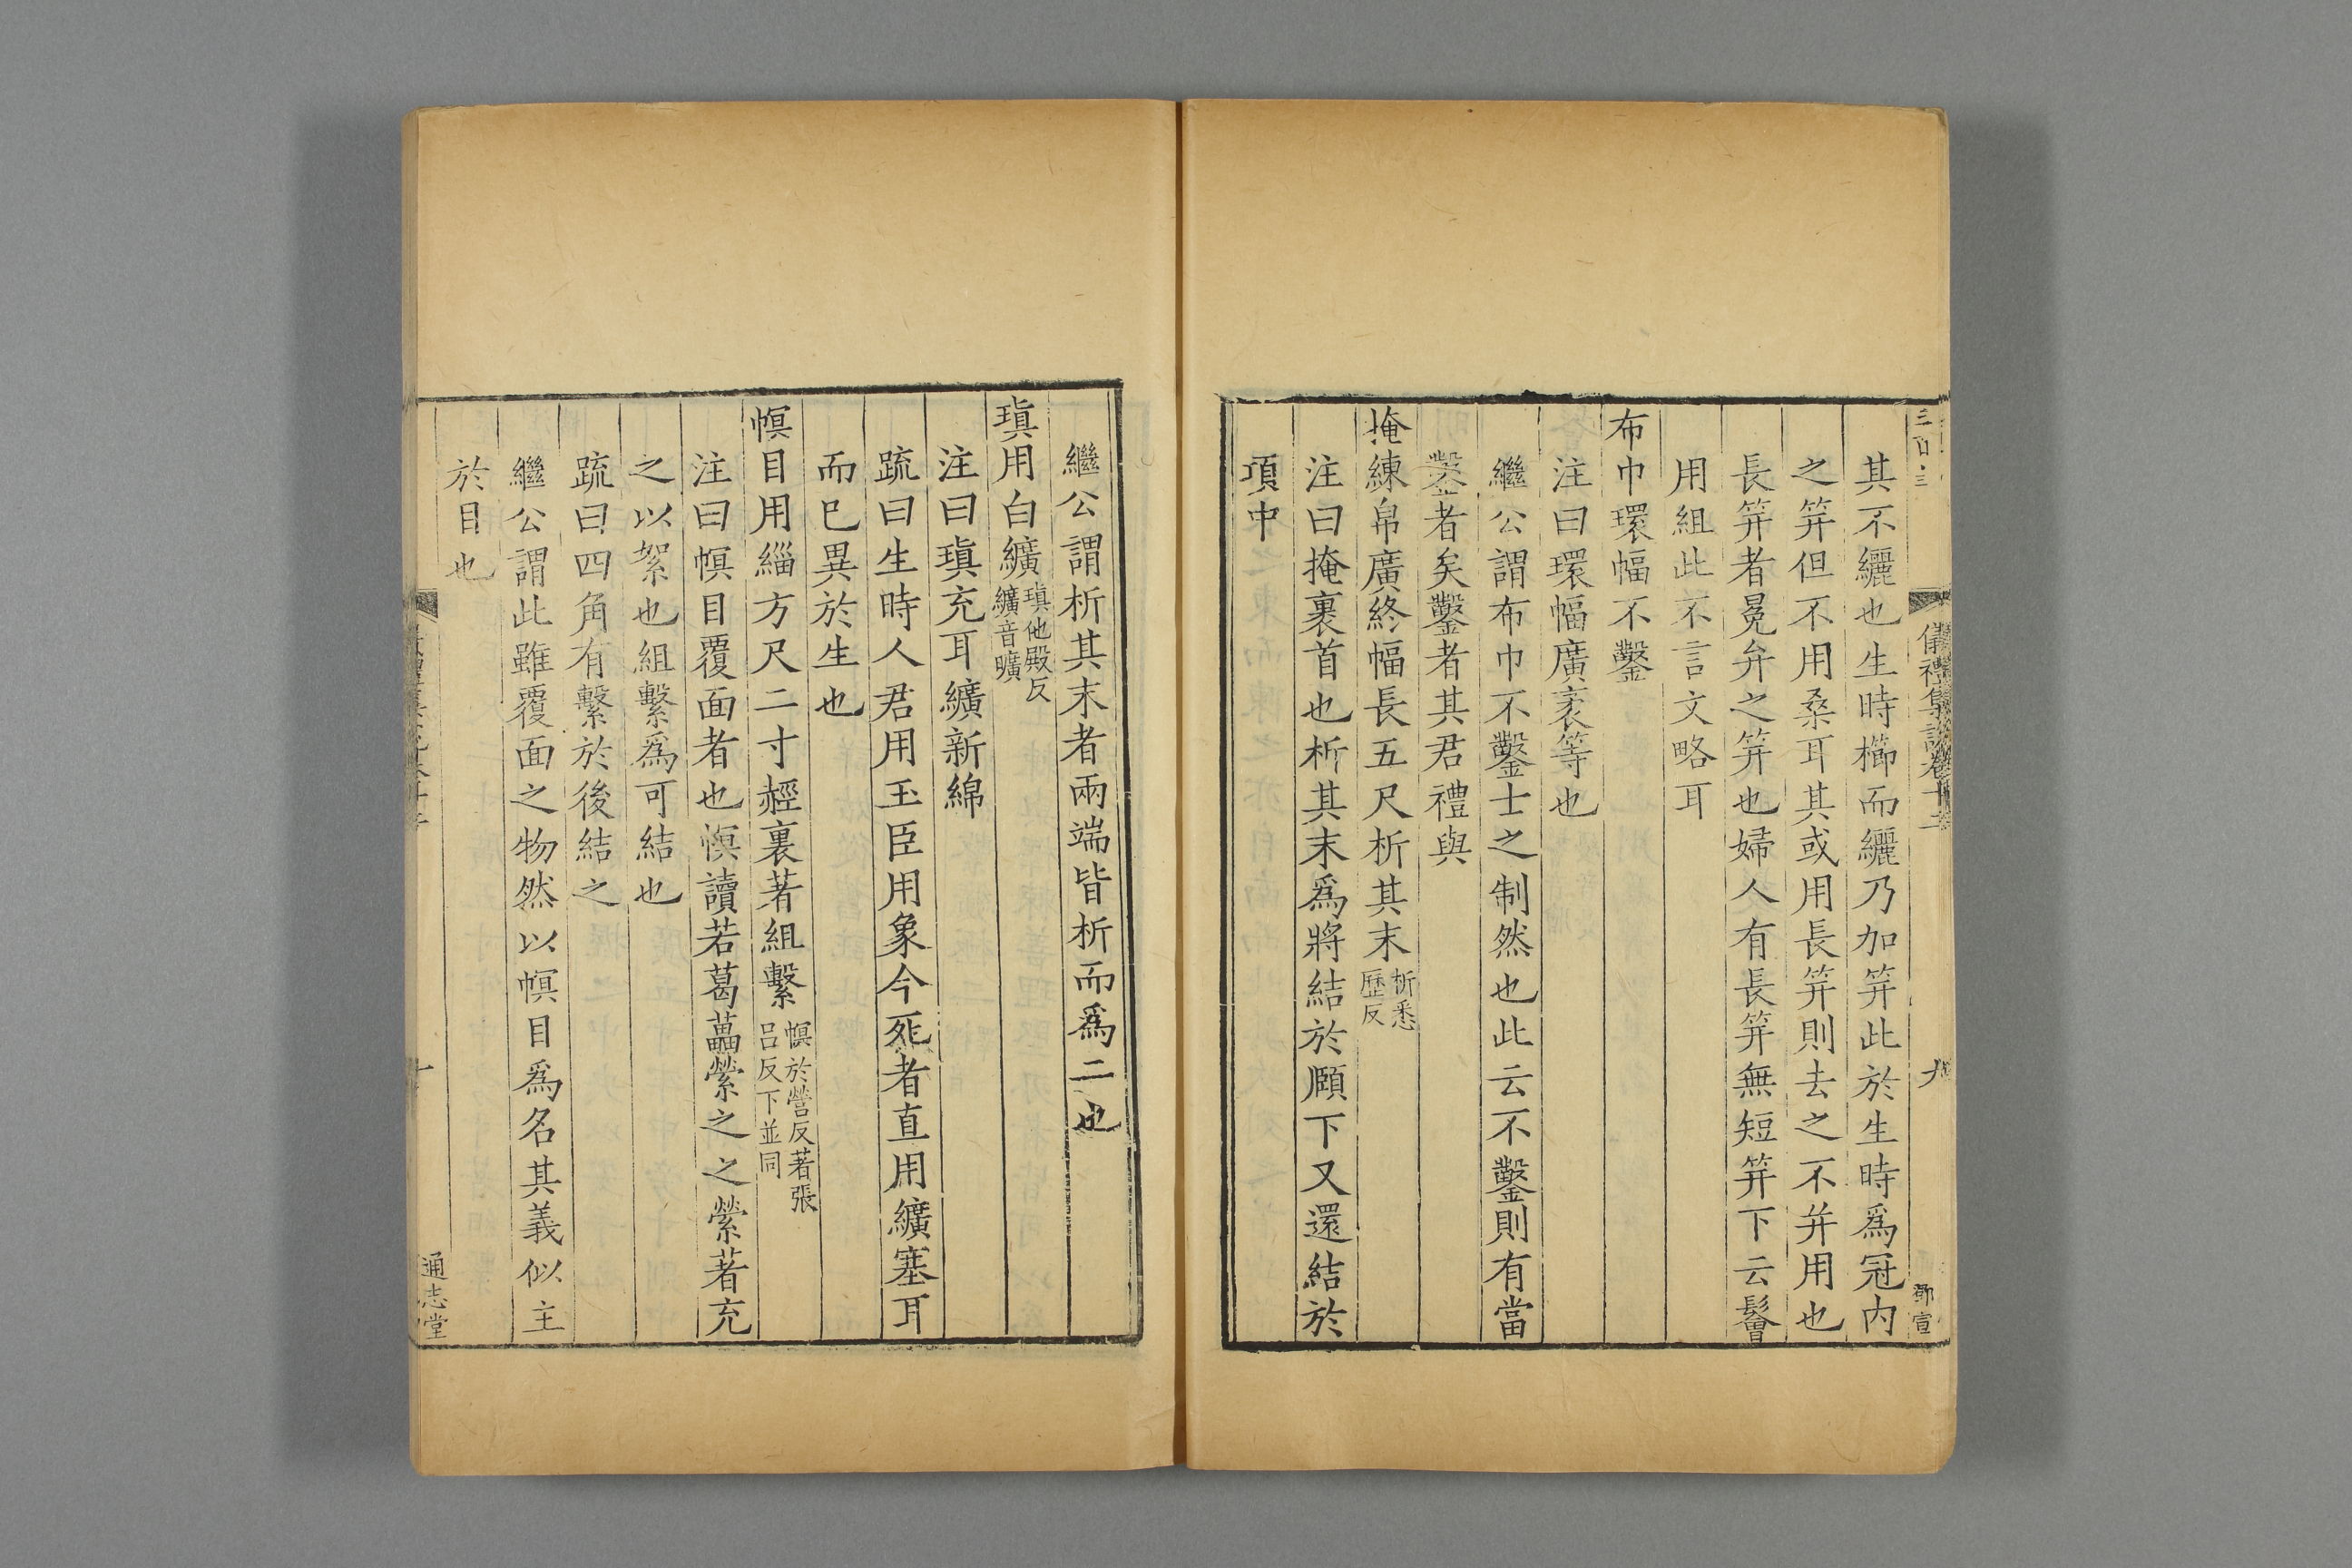 三百三
儀禮集說卷十二
九
鄧宣
其不纚也生時櫛而纚乃加笄此於生時爲冠内
之笄但不用桑耳其或用長笄則去之不并用也
長笄者冕弁之笄也婦人有長笄無短笄下云鬠
用組此不言文略耳
布巾環幅不鑿
注曰環幅廣袤等也
繼公謂布巾不鑿士之制然也此云不鑿則有當
鑿者矣鑿者其君禮與
掩練帛廣終幅長五尺析其末析悉歷反
注曰掩裹首也析其末爲將結於頤下又還結於
項中
繼公謂析其末者兩端皆析而爲二也
瑱用白纊瑱他殿反纊音曠
注曰瑱充耳纊新綿
疏曰生時人君用玉臣用象今死者直用纊塞耳
而已異於生也
幎目用緇方尺二寸䞓裏著組繫幎於營反著張呂反下並同
注曰幎目覆面者也幎讀若葛藟縈之之縈著充
之以絮也組繫爲可結也
疏曰四角有繫於後結之
繼公謂此雖覆面之物然以幎目爲名其義似主
於目也
十
通志堂